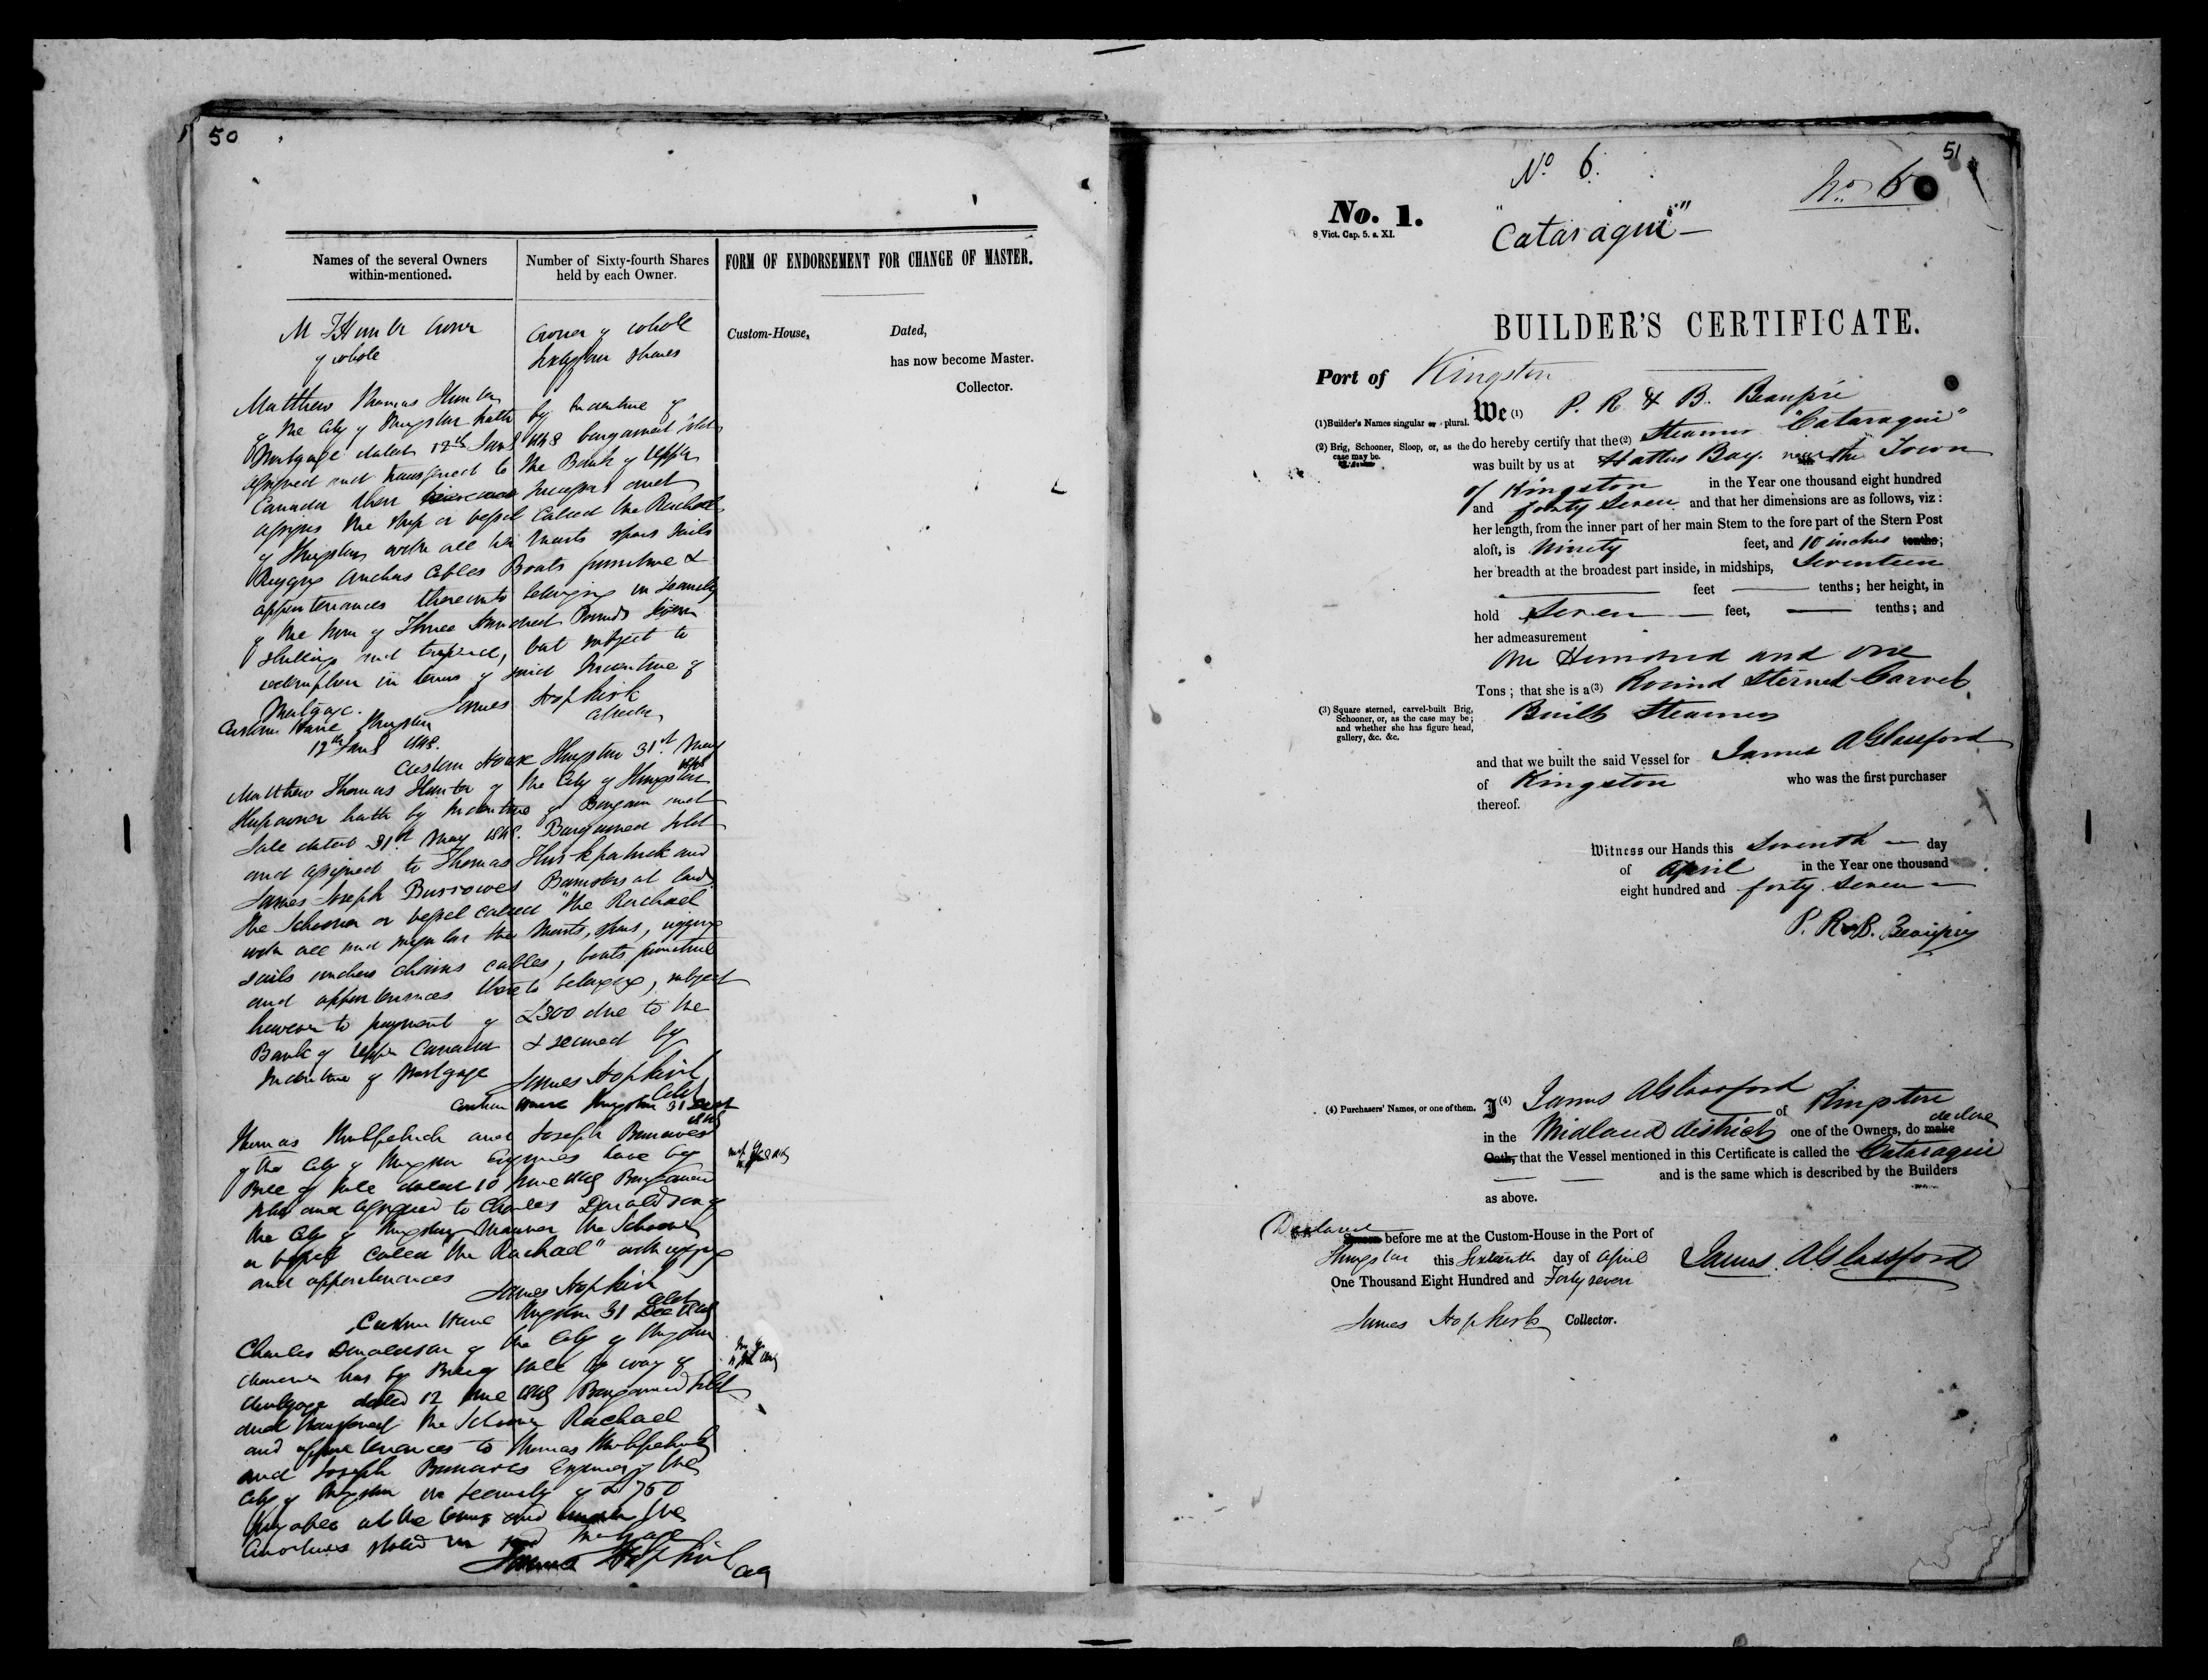 50
Names of the several Owners
within-mentioned.
Number of Sixty-fourth Shares
held by each Owner.
FORM OF ENDORSEMENT FOR CHANGE OF MASTER.
M T Hunter owner
of whole
owner of whole
Sixtyfour shares
Custom-House,
Dated,
has now become Master.
Collector.
Matthew Thomas Hunter
of the City of Kingston hath by Indenture of
Mortgage dated 12th Jany 1848 bargained sold
assigned and transferred to the Bank of Upper
Canada their and
assigns the ship or vessel called the Rachael
of Kingston with all her masts spars sails
Rigging anchors Cables Boats furniture &
appurtenances thereunto belonging in security
of the sum of Three Hundred Pounds
shillings and but subject to
redemption in terms of said Indenture of
Mortgage. James Hopkirk
Collector
Custom House Kingston
12th Jany 1848.
Custom House Kingston 31st May
1848
Matthew Thomas Hunter of the City of Kingston
Shipowner hath by Indenture of Bargain and
Sale dated 31st May 1848. Bargained Sold
and assigned to Thomas Kirkpatrick and
James Joseph Burrowes Barristers at law
the Schooner or vessel called "the Rachael
with all and singular the Masts, spars, rigging
sails anchors chains cables, boats furniture
and appurtenances thereto belonging, subject
however to payment of £300 due to the
Bank of Upper Canada & secured by
Indenture of Mortgage
James Hopkirk
Coll
Custom House Kingston 31
Thomas Kirkpatrick and Joseph Burrowes
of the City of Kingston Esquires have by
Bill of Sale dated 10 June 1849 Bargained
sold and assigned to Charles Donaldson of
the City of Kingston Mariner the Schooner
or vessel called "the Rachael" with rigging
and appurtenances
James Hopkirk
Coll
Custom House Kingston 31 Dec 1849
Charles Donaldson of the City of Kingston
Mariner has by Bill of Sale by way of
Mortgage dated 12 June 1849 Bargained sold
and transferred the Schooner Rachael
and appurtenances to Thomas Kirkpatrick
and Joseph Burrowes Esquires of the
City of Kingston in security of £750
payable at the times and under the
stated in said Mortgage
James Hopkirk
Coll
51
No 6.
No. 6
No. 1.
8 Vict. Cap. 5. s. XI.
"Cataraqui"
BUILDER'S CERTIFICATE.
Port of Kingston
(1) Builder's Names singular or plural.
We (1) P. R. & B. Beaupré
(2) Brig, Schooner, Sloop, or, as the
case may be.
do hereby certify that the (2) Steamer "Cataraqui"
was built by us at Hatters Bay. near the Town
of Kingston in the Year one thousand eight hundred
and forty Seven and that her dimensions are as follows, viz:
her length, from the inner part of her main Stem to the fore part of the Stern Post
aloft, is Ninety feet, and 10 inches tenths;
her breadth at the broadest part inside, in midships, Seventeen
feet tenths; her height, in
hold Seven feet, tenths; and
her admeasurement
One Hundred and one
Tons; that she is a (3) Round Sterned Carvel
Built Steamer
(3) Square sterned, carvel-built Brig,
Schooner, or, as the case may be;
and whether she has figure head,
gallery, &c. &c.
and that we built the said Vessel for James A Glassford
of Kingston who was the first purchaser
thereof.
Witness our Hands this Seventh day
of April in the Year one thousand
eight hundred and forty seven
P. R & B. Beaupré
(4) Purchasers' Names, or one of them.
I (4) James A Glassford of Kingston
in the Midland district one of the Owners, do make declare
Oath, that the Vessel mentioned in this Certificate is called the Cataraqui
and is the same which is described by the Builders
as above.
Declared
Sworn before me at the Custom-House in the Port of
Kingston this Sixteenth day of April
One Thousand Eight Hundred and Forty seven
James A Glassford
James Hopkirk Collector.